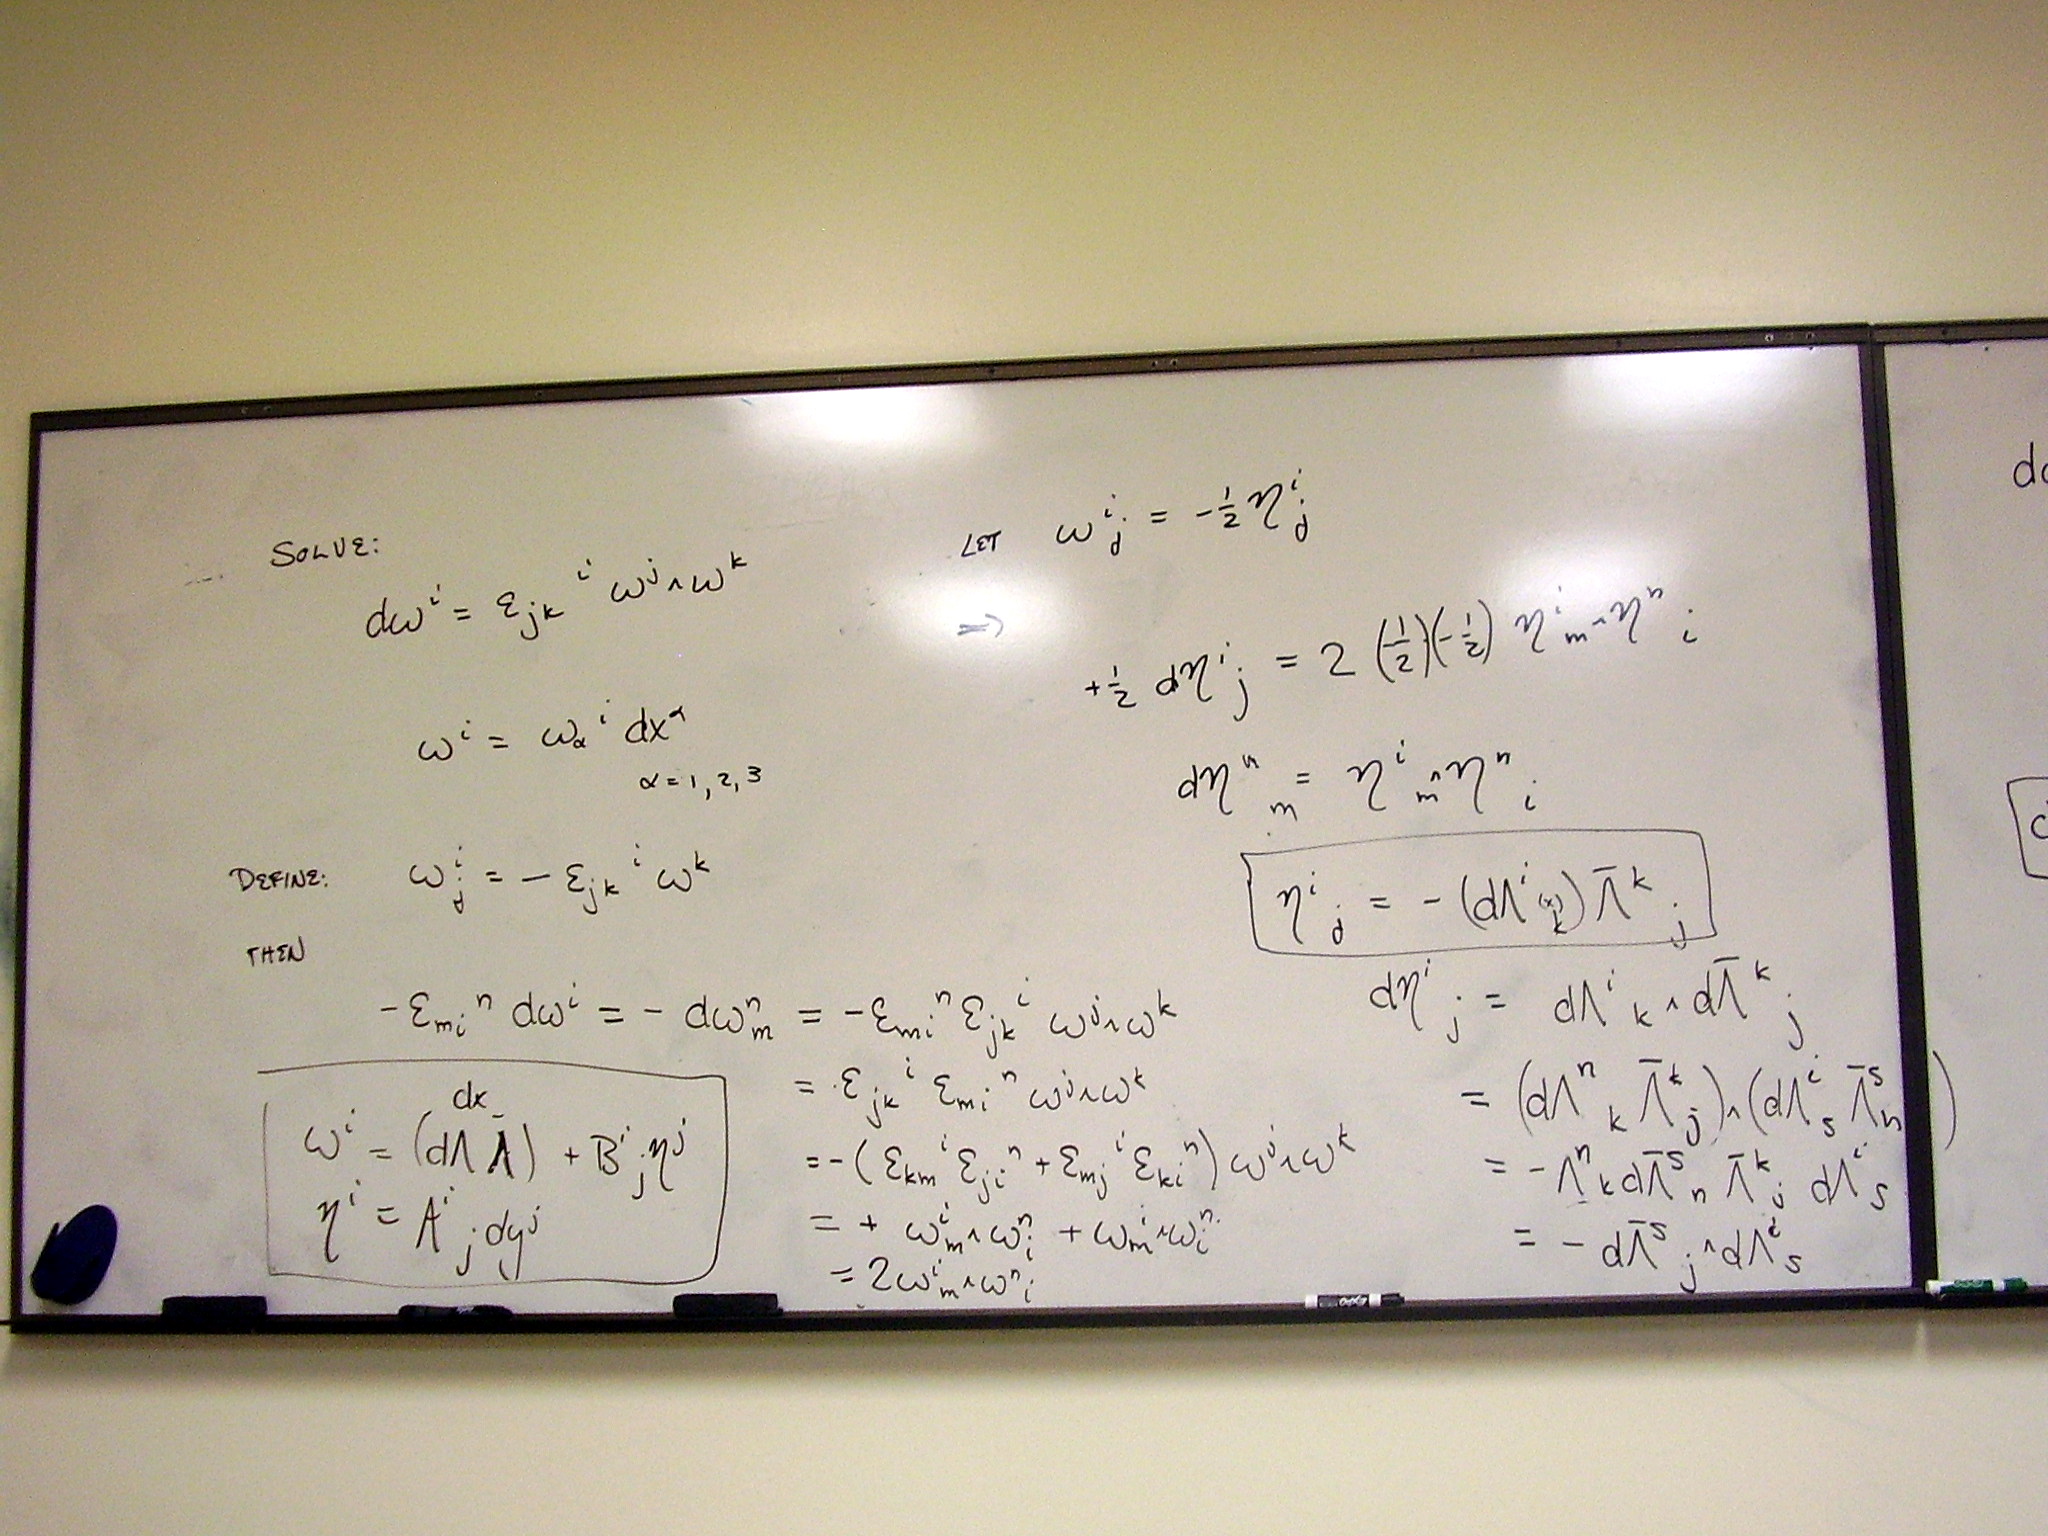 SOLVE:
dωⁱ = ε_{jk}^i ω^j ∧ ω^k
ωⁱ = ω_α^i dx^α
α = 1, 2, 3
DEFINE: ω^i_j = - ε_{jk}^i ω^k
THEN
- ε_{mi}^n dω^i = - dω^n_m = - ε_{mi}^n ε_{jk}^i ω^j ∧ ω^k
= ε_{jk}^i ε_{mi}^n ω^j ∧ ω^k
= - ( ε_{km}^i ε_{ji}^n + ε_{mj}^i ε_{ki}^n ) ω^j ∧ ω^k
= + ω^i_m ∧ ω^n_i + ω^i_m ∧ ω^n_i
= 2 ω^i_m ∧ ω^n_i
dx
ω^i = (dΛ Λ̄) + B^i_j η^j
η^i = A^i_j dy^j
LET ω^i_j = - ½ η^i_j
⇒
+ ½ dη^i_j = 2 (½)(-½) η^i_m ∧ η^n_i
dη^n_m = η^i_m ∧ η^n_i
η^i_j = - (dΛ^i_k(x)) Λ̄^k_j
dη^i_j = dΛ^i_k ∧ dΛ̄^k_j
= (dΛ^n_k Λ̄^k_j) ∧ (dΛ^i_s Λ̄^s_n)
= - Λ^n_k dΛ̄^s_n Λ̄^k_j dΛ^i_s
= - dΛ̄^s_j ∧ dΛ^i_s